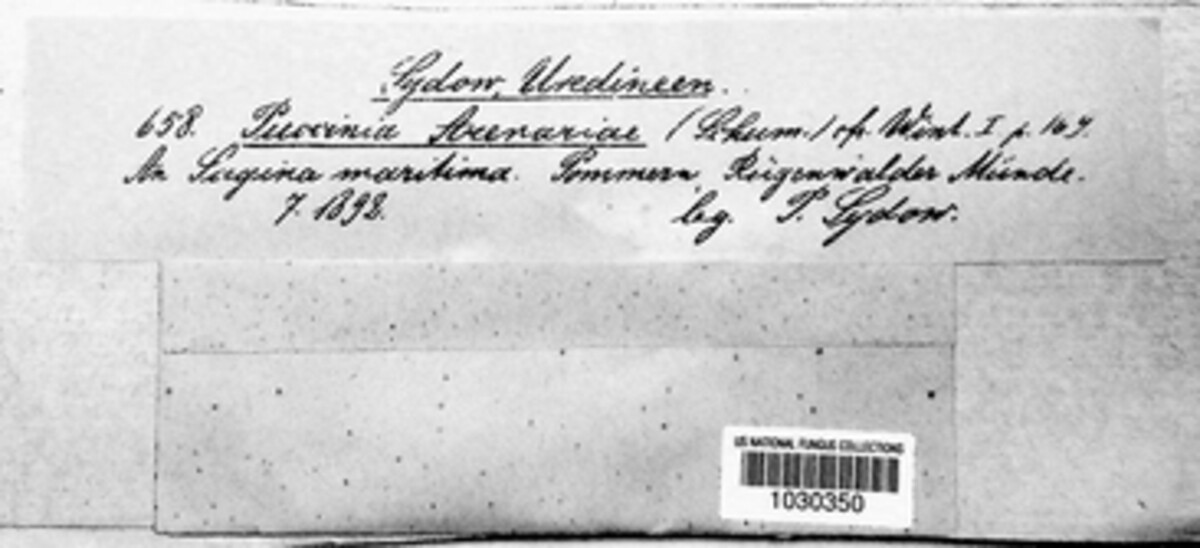 Sydow, Uredineen.
658. Puccinia Arenariae (Schum.) cfr. Wint. I p. 169.
An Sagina maritima. Pommern, Rügenwalder Münde.
7. 1892. leg. P. Sydow.
US NATIONAL FUNGUS COLLECTIONS
1030350